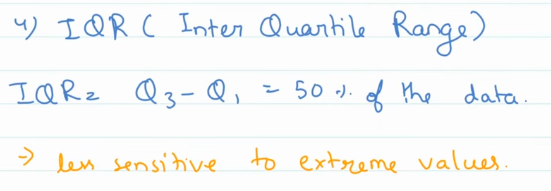 4) IQR ( Inter Quartile Range)
IQR = Q₃ - Q₁ = 50 % of the data.
→ less sensitive to extreme values.